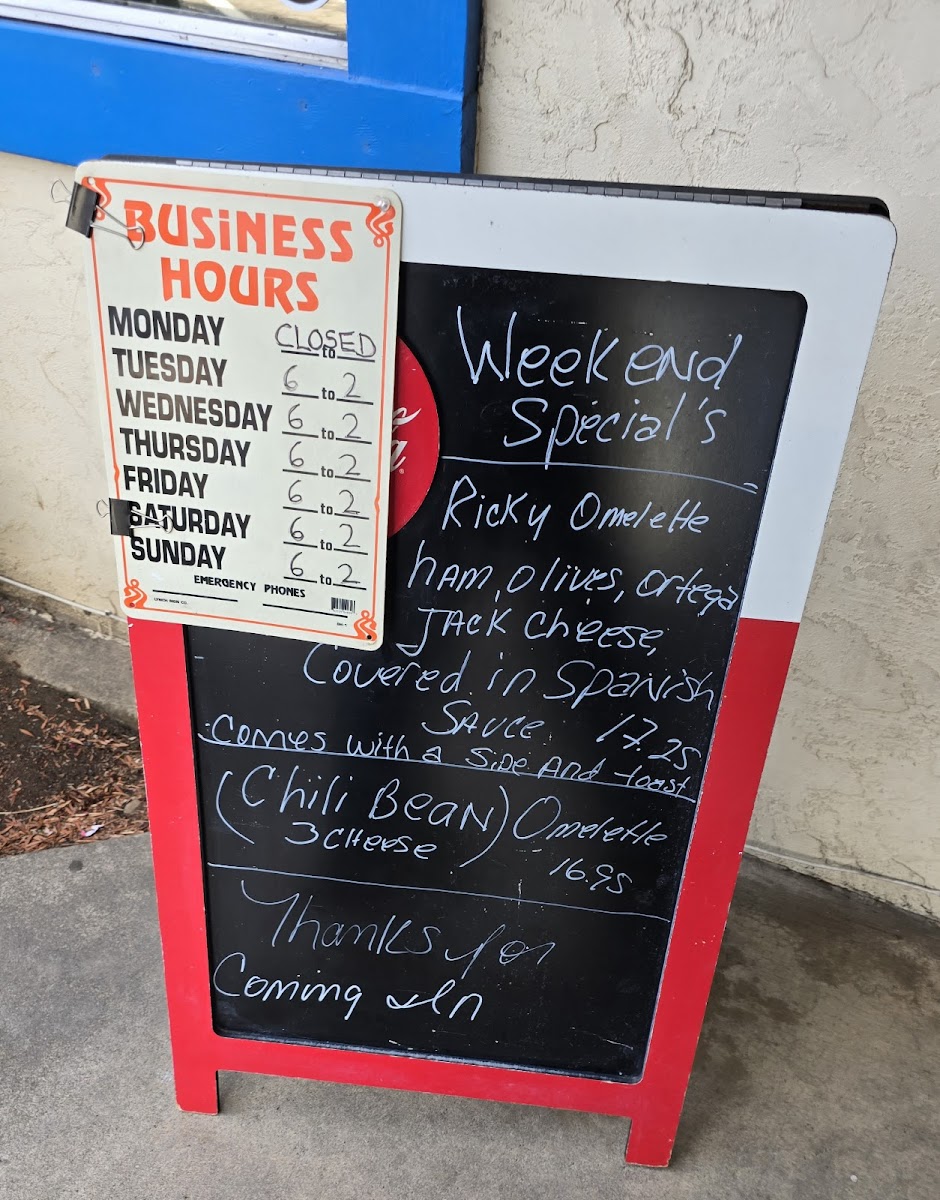 BUSINESS
HOURS
MONDAY CLOSED to
TUESDAY 6 to 2
WEDNESDAY 6 to 2
THURSDAY 6 to 2
FRIDAY 6 to 2
SATURDAY 6 to 2
SUNDAY 6 to 2
EMERGENCY PHONES
Weekend
Special's
Ricky Omelette
HAM, Olives, Ortega
JACK Cheese,
Covered in Spanish
SAUCE. 17.25
Comes with a Side And toast
(Chili BeaN) Omelette
3 CHeese
16.95
Thanks for
Coming In